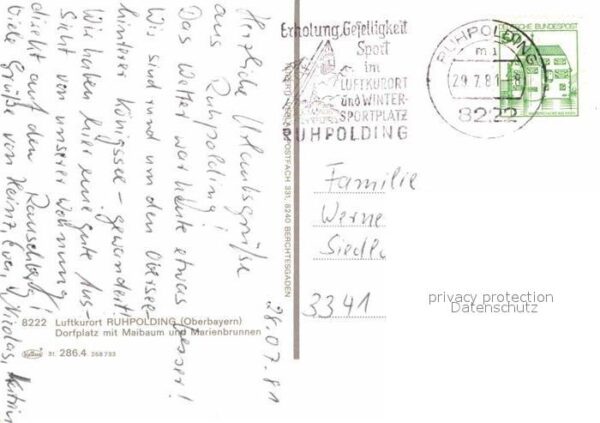 Herzliche Urlaubsgrüße
aus Ruhpolding!
Das Wetter war heute etwas besser!
Wir sind rund um den Obersee-
hinterer Königssee - gewandert!
Wir haben hier eine gute Aus-
sicht von unserer Wohnung
direkt auf den Rauschberg!
Viele Grüße von Heinz, Nicolas, Katrin
28.07.81
Erholung, Geselligkeit
Sport
im
LUFTKURORT
und WINTER-
SPORTPLATZ
RUHPOLDING
RUHPOLDING
m i
29.7.81
8222
DEUTSCHE BUNDESPOST
POSTFACH 331, 8240 BERCHTESGADEN
Familie
Werne
Siedle
3341
privacy protection
Datenschutz
8222 Luftkurort RUHPOLDING (Oberbayern)
Dorfplatz mit Maibaum und Marienbrunnen
31. 286.4 268733